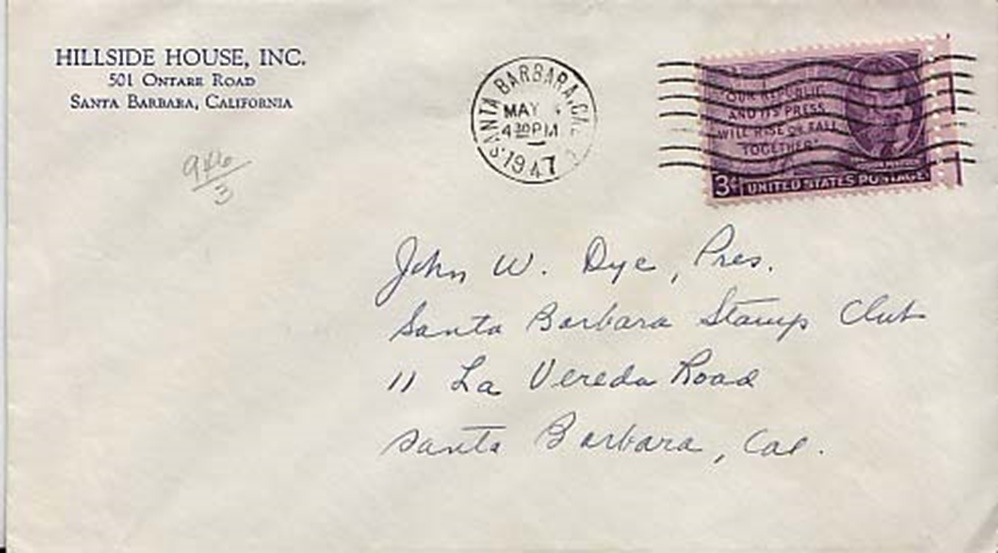 HILLSIDE HOUSE, INC.
501 ONTARE ROAD
SANTA BARBARA, CALIFORNIA
SANTA BARBARA, CAL
MAY
4 30 PM
1947
"OUR REPUBLIC
AND ITS PRESS
WILL RISE OR FALL
TOGETHER"
3¢ UNITED STATES POSTAGE
John W. Dye, Pres.
Santa Barbara Stamp Club
11 La Vereda Road
Santa Barbara, Cal.